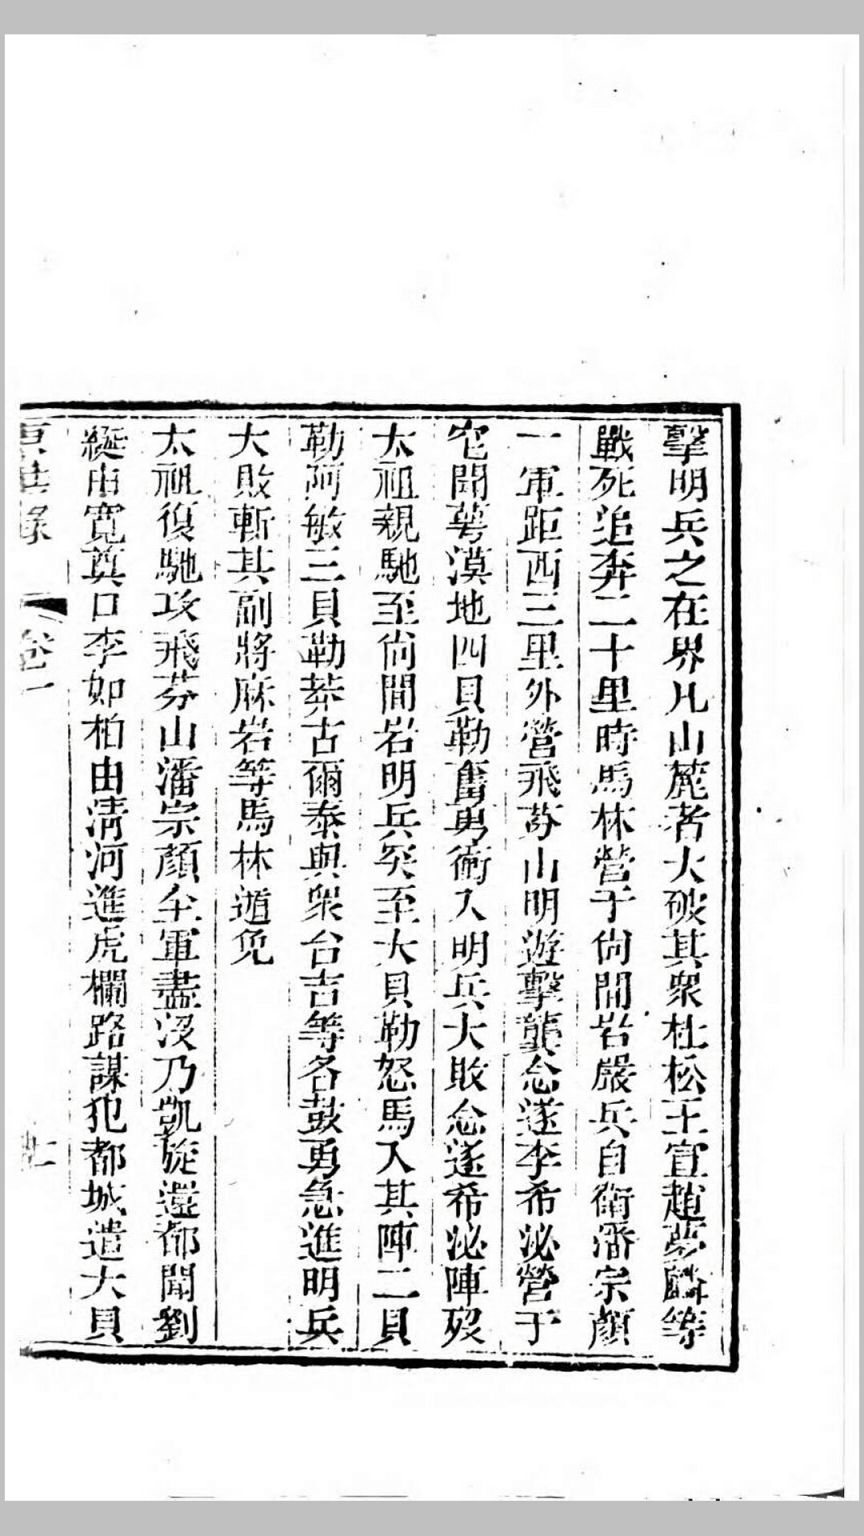 擊明兵之在界凡山麓者大破其衆杜松王宣趙夢麟等
戰死追奔二十里時馬林營于尙間岩嚴兵自衛潘宗顏
一軍距西三里外營飛芬山明遊擊龔念遂李希泌營于
窀閙萼漠地四貝勒奮勇衝入明兵大敗念遂希泌陣歿
太祖親馳至尙間岩明兵突至大貝勒怒馬入其陣二貝
勒阿敏三貝勒莽古爾泰與衆台吉等各鼓勇急進明兵
大敗斬其副將麻岩等馬林遁免
太祖復馳攻飛芬山潘宗顏全軍盡沒乃凱旋還都聞劉
綎由寬奠口李如柏由淸河進虎欄路謀犯都城遣大貝
東華錄 卷一